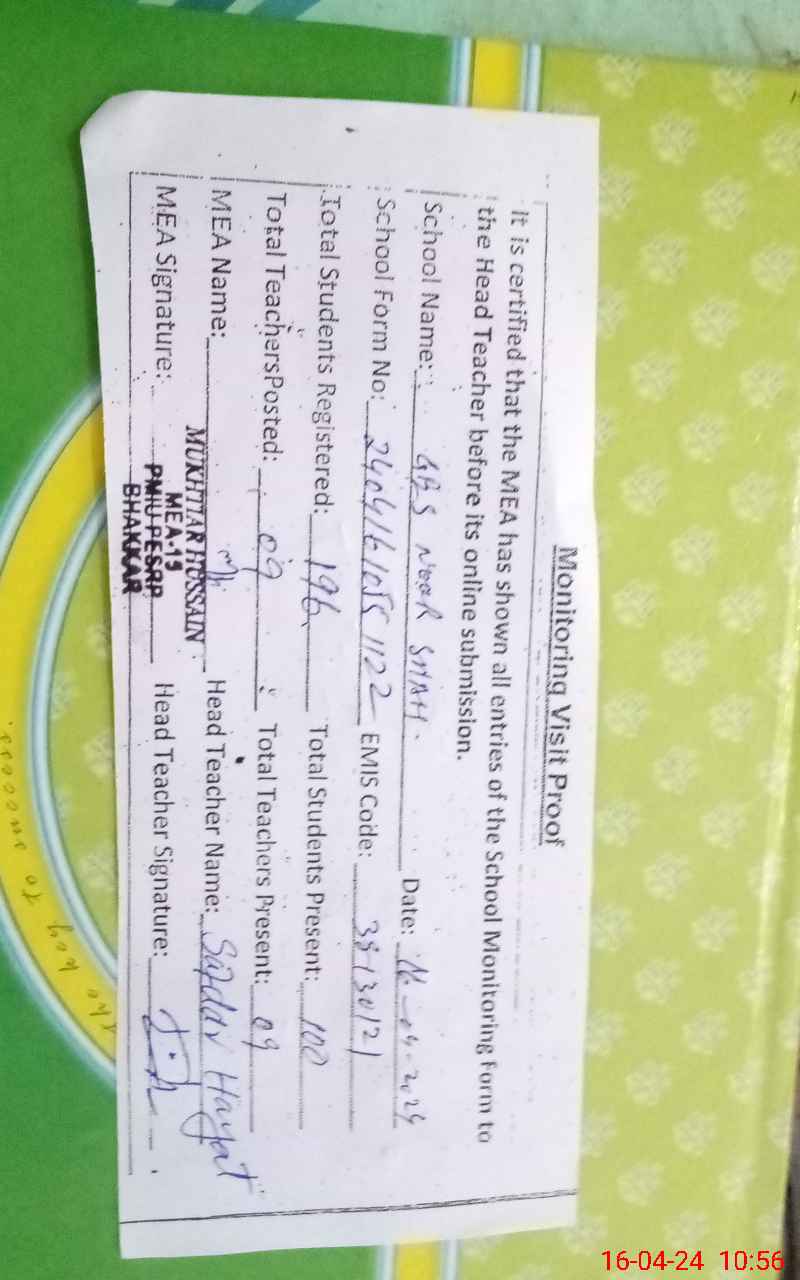 Monitoring Visit Proof
It is certified that the MEA has shown all entries of the School Monitoring Form to
the Head Teacher before its online submission.
School Name: GPS NOOR SHAH. Date: 16-04-2024
School Form No: 2404161055 1122 EMIS Code: 38130121
Total Students Registered: 196 Total Students Present: 100
Total TeachersPosted: 09 Total Teachers Present: 09
MEA Name: MUKHTIAR HUSSAIN Head Teacher Name: Safdar Hayat
MEA Signature: Head Teacher Signature:
MEA-19
PMIU PESRP
BHAKKAR
The key to success.
16-04-24 10:56